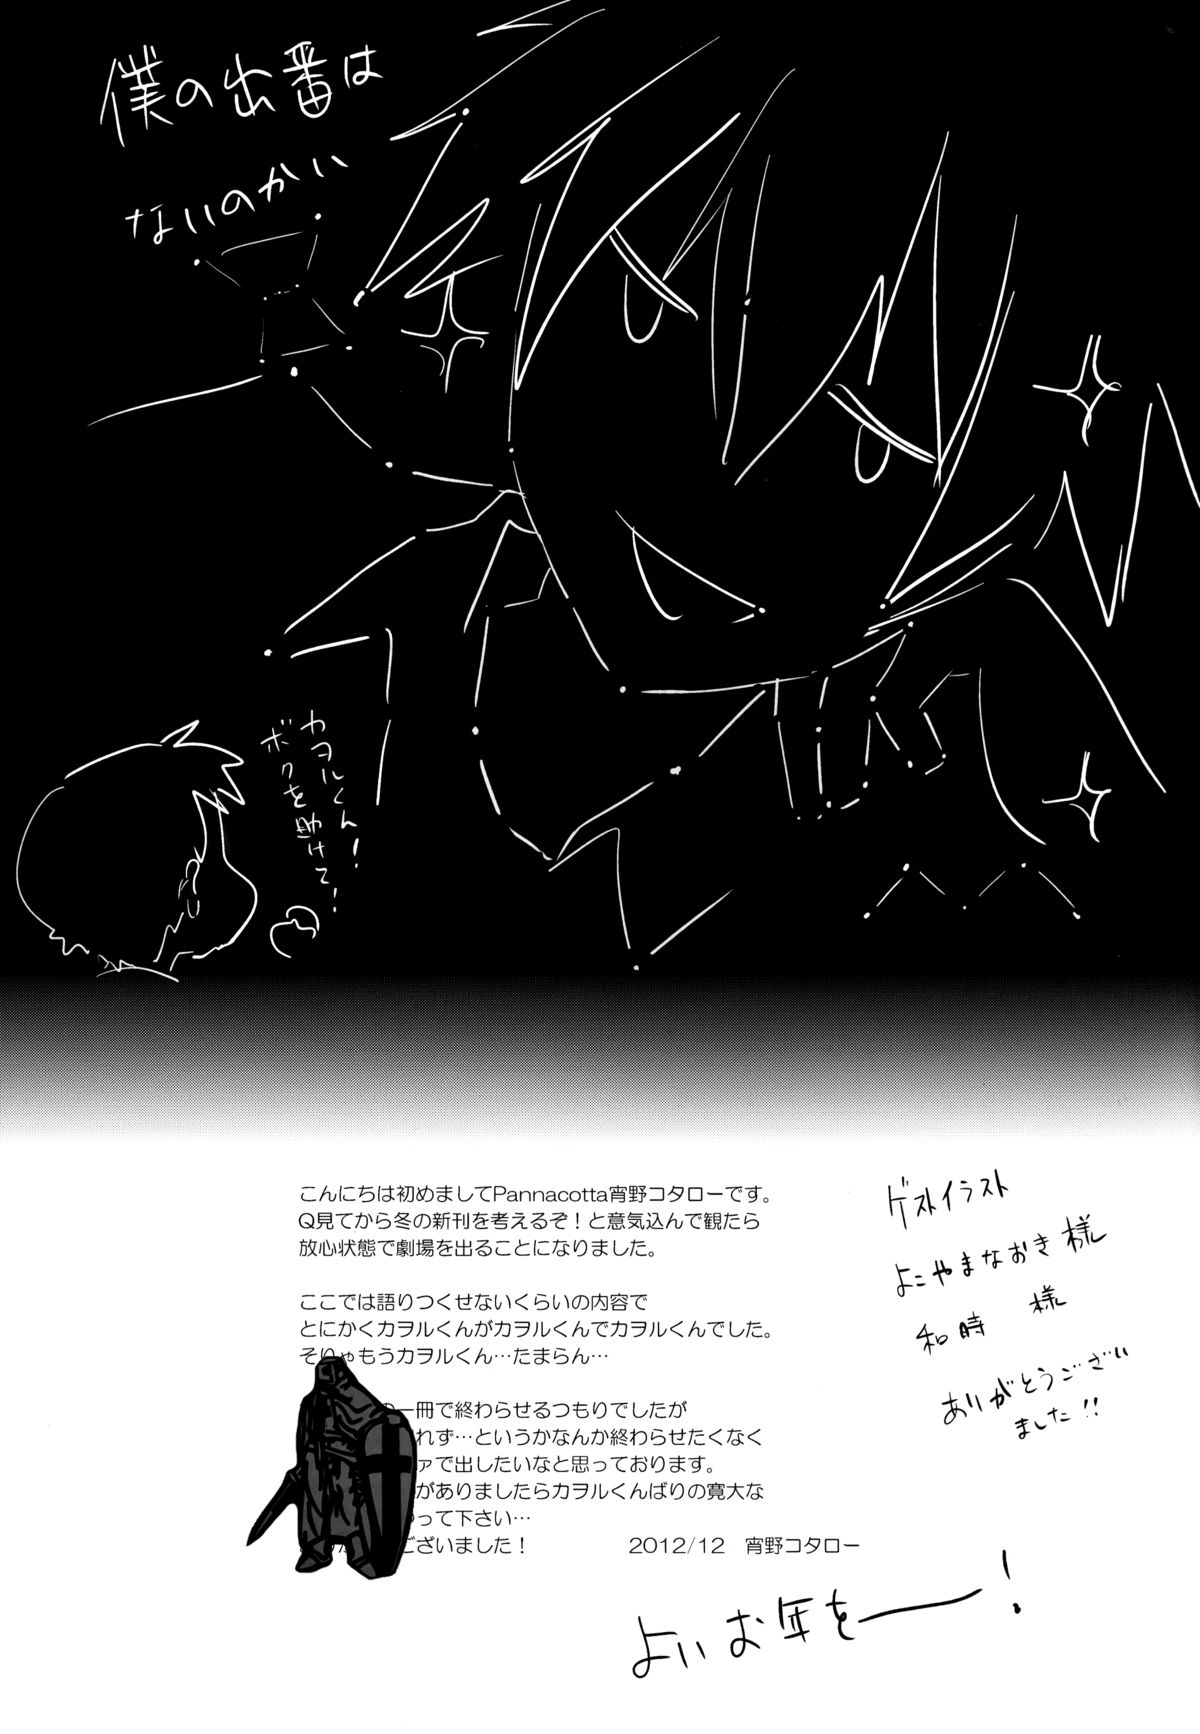 僕の出番は
ないのかい
カヲルくん!
ボクを助けて!
こんにちは初めましてPannacotta宵野コタローです。
Q見てから冬の新刊を考えるぞ!と意気込んで観たら
放心状態で劇場を出ることになりました。
ここでは語りつくせないくらいの内容で
とにかくカヲルくんがカヲルくんでカヲルくんでした。
そりゃもうカヲルくん…たまらん…
一冊で終わらせるつもりでしたが
れず…というかなんか終わらせたくなく
ァで出したいなと思っております。
がありましたらカヲルくんばりの寛大な
って下さい…
ございました!
2012/12 宵野コタロー
ゲストイラスト
よこやまなおき様
和時 様
ありがとうござい
ました!!
よいお年をー!